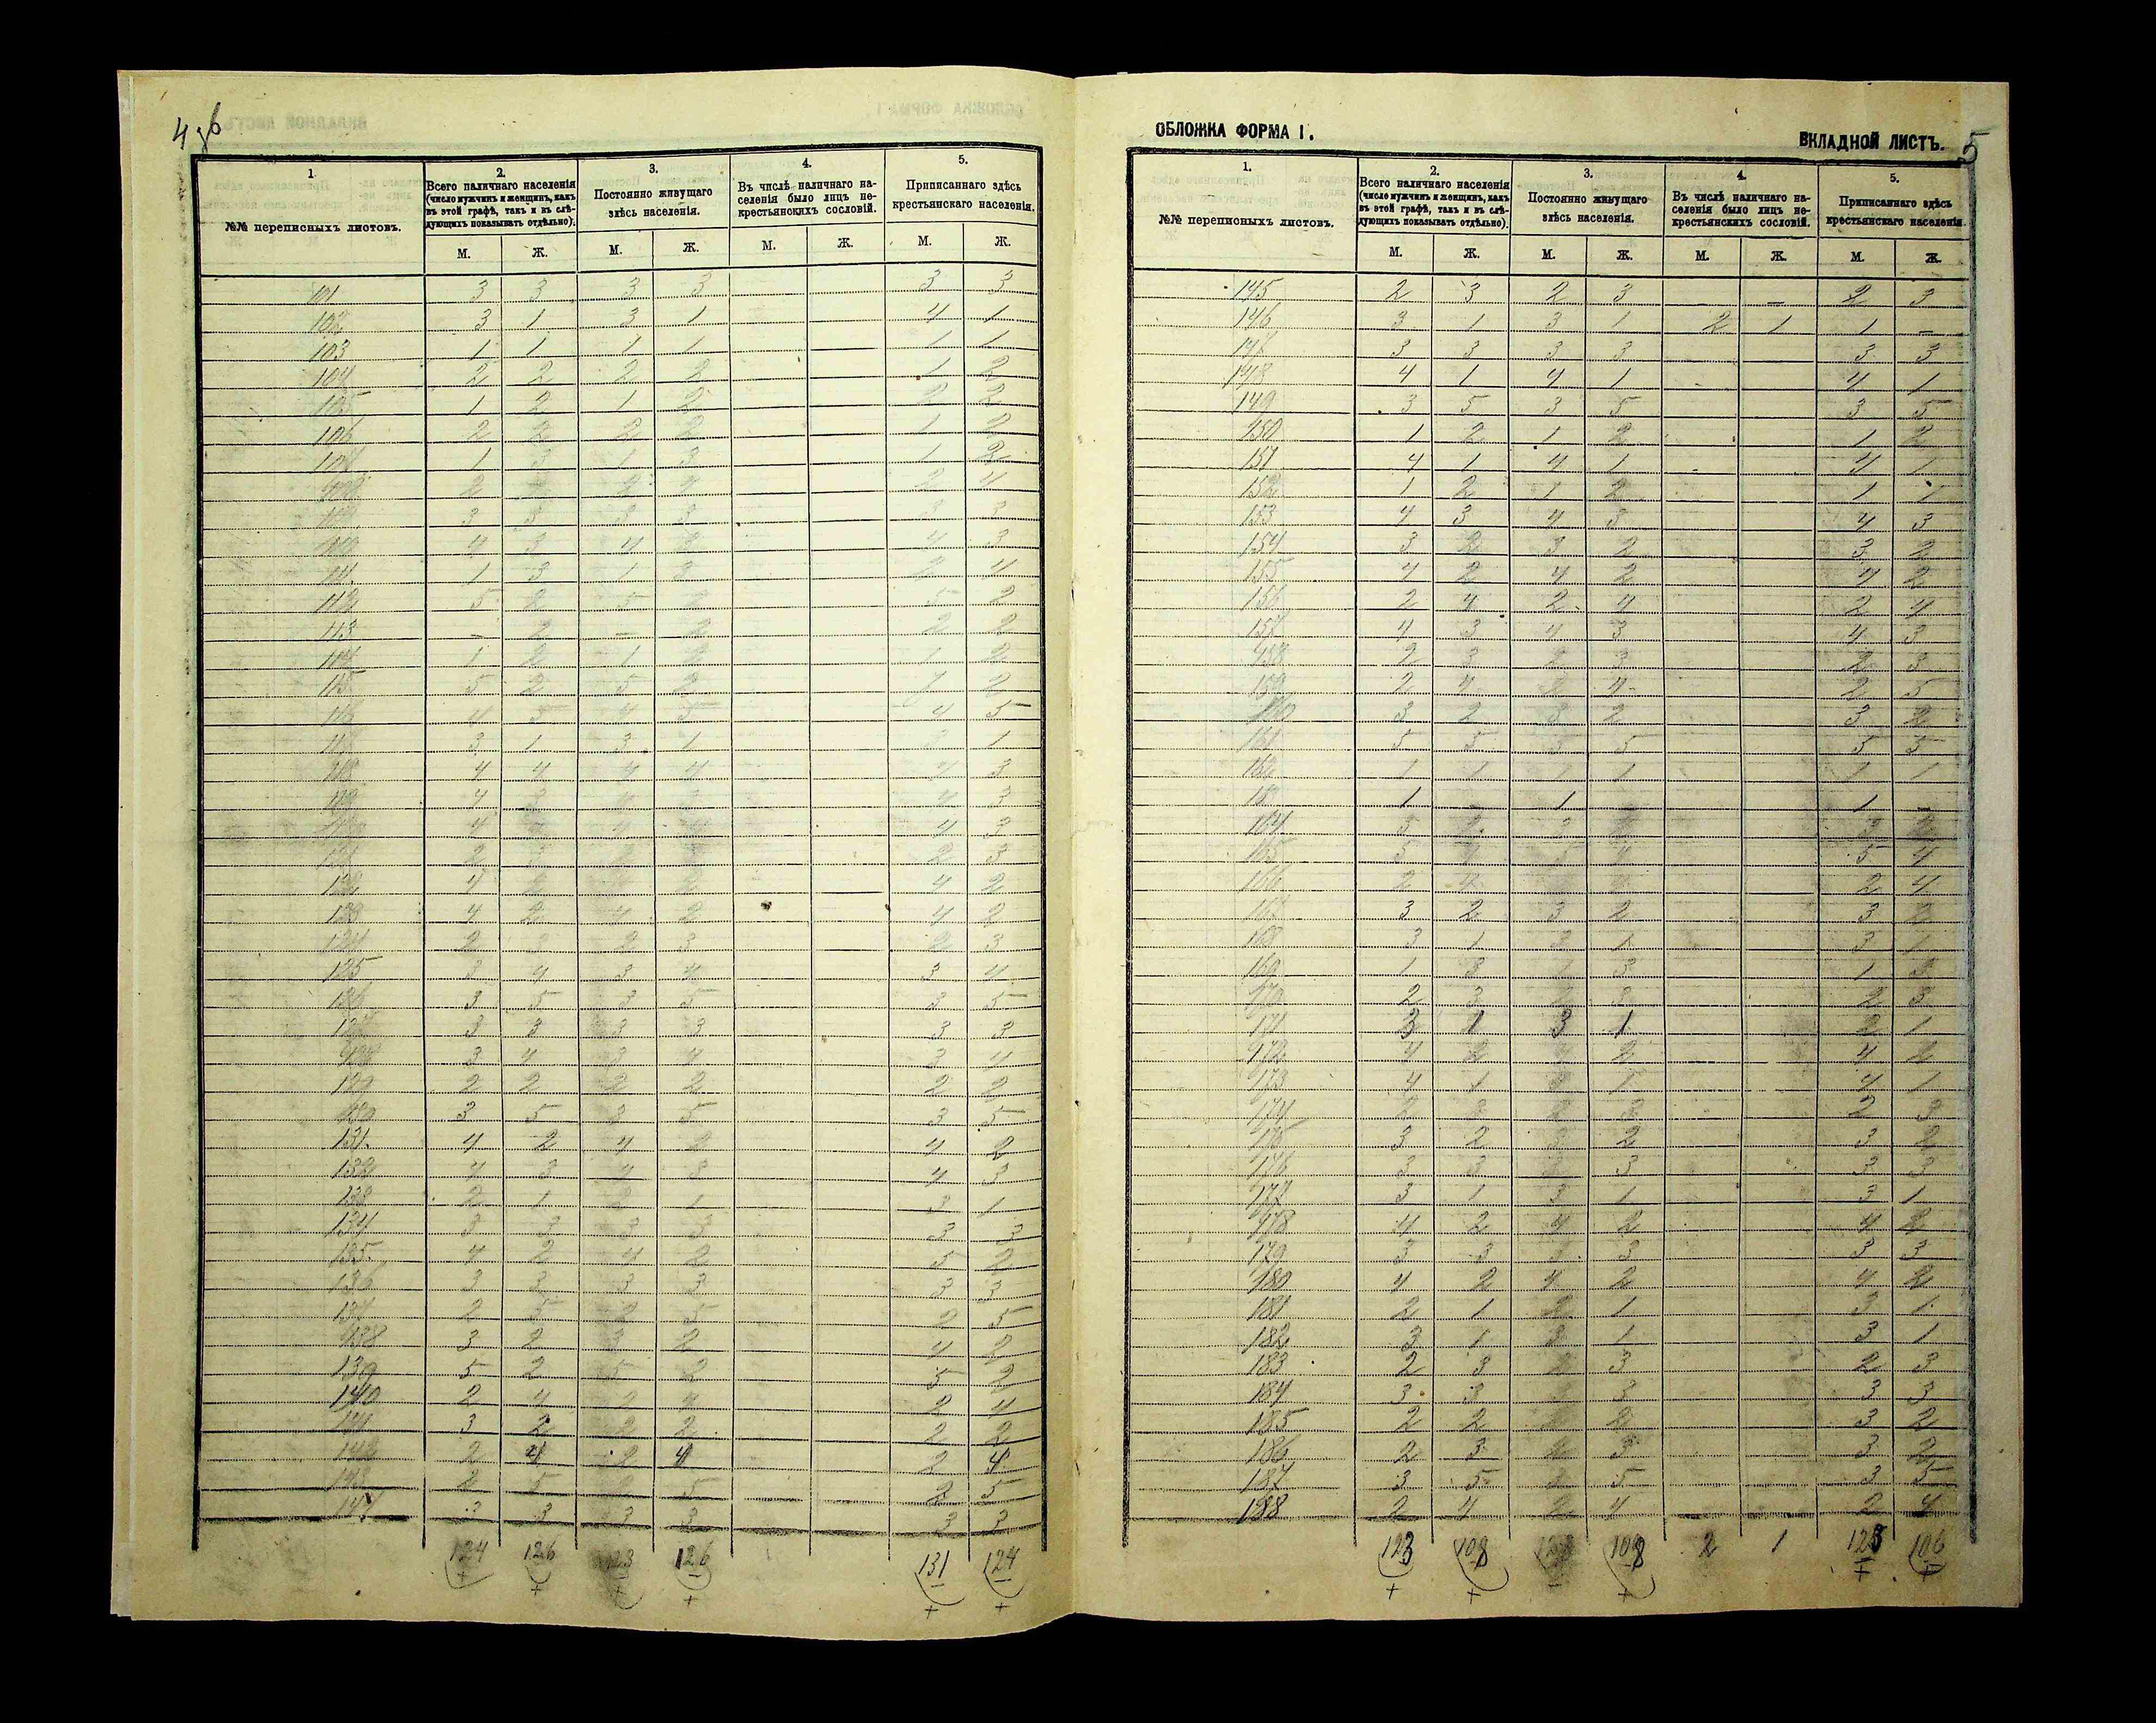 4 об
1
№№ переписныхъ листовъ.
2.
Всего наличнаго населенія
(число мужчинъ и женщинъ, какъ
въ этой графѣ, такъ и въ слѣ-
дующихъ показывать отдѣльно).
3.
Постоянно живущаго
здѣсь населенія.
4.
Въ числѣ наличнаго на-
селенія было лицъ не-
крестьянскихъ сословій.
5.
Приписаннаго здѣсь
крестьянскаго населенія.
М. Ж. М. Ж. М. Ж. М. Ж.
101 3 3 3 3 3 3
102 3 1 3 1 4 1
103 1 1 1 1 1 1
104 2 2 2 2 1 2
105 1 2 1 2 2 2
106 2 2 2 2 1 2
1 3 1 3 1
2 2 4 2 4
3 3 3 3
4 3 4 4 3
1 3 1 3 2 4
112 5 2 5 5 2
113 - 2 - 2 2 2
114 1 2 1 2 1 2
115 5 2 5 2 2
4 5 4 5 4 5
3 1 3 1 1
118 4 4 4 4 3
4 4 3
4 4 3
2 3 2 3
4 2 2 4 2
123 4 2 4 2 4 2
124 2 2 3 2 3
125 3 4 3 4 3 4
126 3 5 3 5 3 5
127 3 3 3 3 3 3
128 3 4 3 4 3 4
129 2 2 2 2 2 2
130 3 5 3 5 3 5
131. 4 2 4 2 4 2
132 4 3 4 3 4 3
133 2 1 2 1 3 1
134 3 3 3 3 3 3
135. 4 2 4 2 5 2
136 3 3 3 3 3 3
137 2 5 2 5 2 5
138 3 2 3 2 4 2
139 5 2 5 2 5 2
140 2 4 2 4 2 4
141 3 2 2 2 2 2
142 2 4 2 4 2 4
143 2 5 2 5 2 5
144 3 3 3 3 3 3
124 126 123 126 131 124
+ + + + + +
ОБЛОЖКА ФОРМА I.
ВКЛАДНОЙ ЛИСТЪ.
5
1.
№№ переписныхъ листовъ.
2.
Всего наличнаго населенія
(число мужчинъ и женщинъ, какъ
въ этой графѣ, такъ и въ слѣ-
дующихъ показывать отдѣльно).
3.
Постоянно живущаго
здѣсь населенія.
4.
Въ числѣ наличнаго на-
селенія было лицъ не-
крестьянскихъ сословій.
5.
Приписаннаго здѣсь
крестьянскаго населенія.
М. Ж. М. Ж. М. Ж. М. Ж.
145 2 3 2 3 - - 2 3
146 3 1 3 1 2 1 1 -
147 3 3 3 3 3 3
148 4 1 4 1 4 1
149 3 5 3 5 3 5
150 1 2 1 2 1 2
151 4 1 4 1 4 1
152 1 2 1 2 1 1
153 4 3 4 3 4 3
154 3 2 3 2 3 2
155 4 2 4 2 4 2
156 2 4 2 4 2 4
157 4 3 4 3 4 3
158 2 3 2 3 2 3
159 2 4 2 4 2 5
160 3 2 3 2 3 2
161 5 5 5 5 5 5
162 1 1 1 1 1 1
1 - 1 - 1 -
164 3 2 3 2 3 2
165 5 4 5 4 5 4
166 2 4 2 4
167 3 2 3 2 3 2
168 3 1 3 1 3 1
169 1 3 1 3 1 3
170 2 3 2 3 2 3
171 3 1 3 1 2 1
172 4 2 4 2 4 2
173 4 1 1 4 1
174 2 3 2 3 2 3
175 3 2 3 2 3 2
176 3 3 3 3 3 3
177 3 1 3 1 3 1
178 4 2 4 2 4 2
179 3 3 3 3 3 3
180 4 2 4 2 4 2
181 2 1 2 1 3 1
182 3 1 3 1 3 1
183 2 3 2 3 2 3
184 3 3 3 3 3 3
185 2 2 2 2 3 2
186 2 3 2 3 3 2
187 3 5 3 5 3 5
188 2 4 2 4 2 4
123 108 108 2 1 123 106
+ + + + +